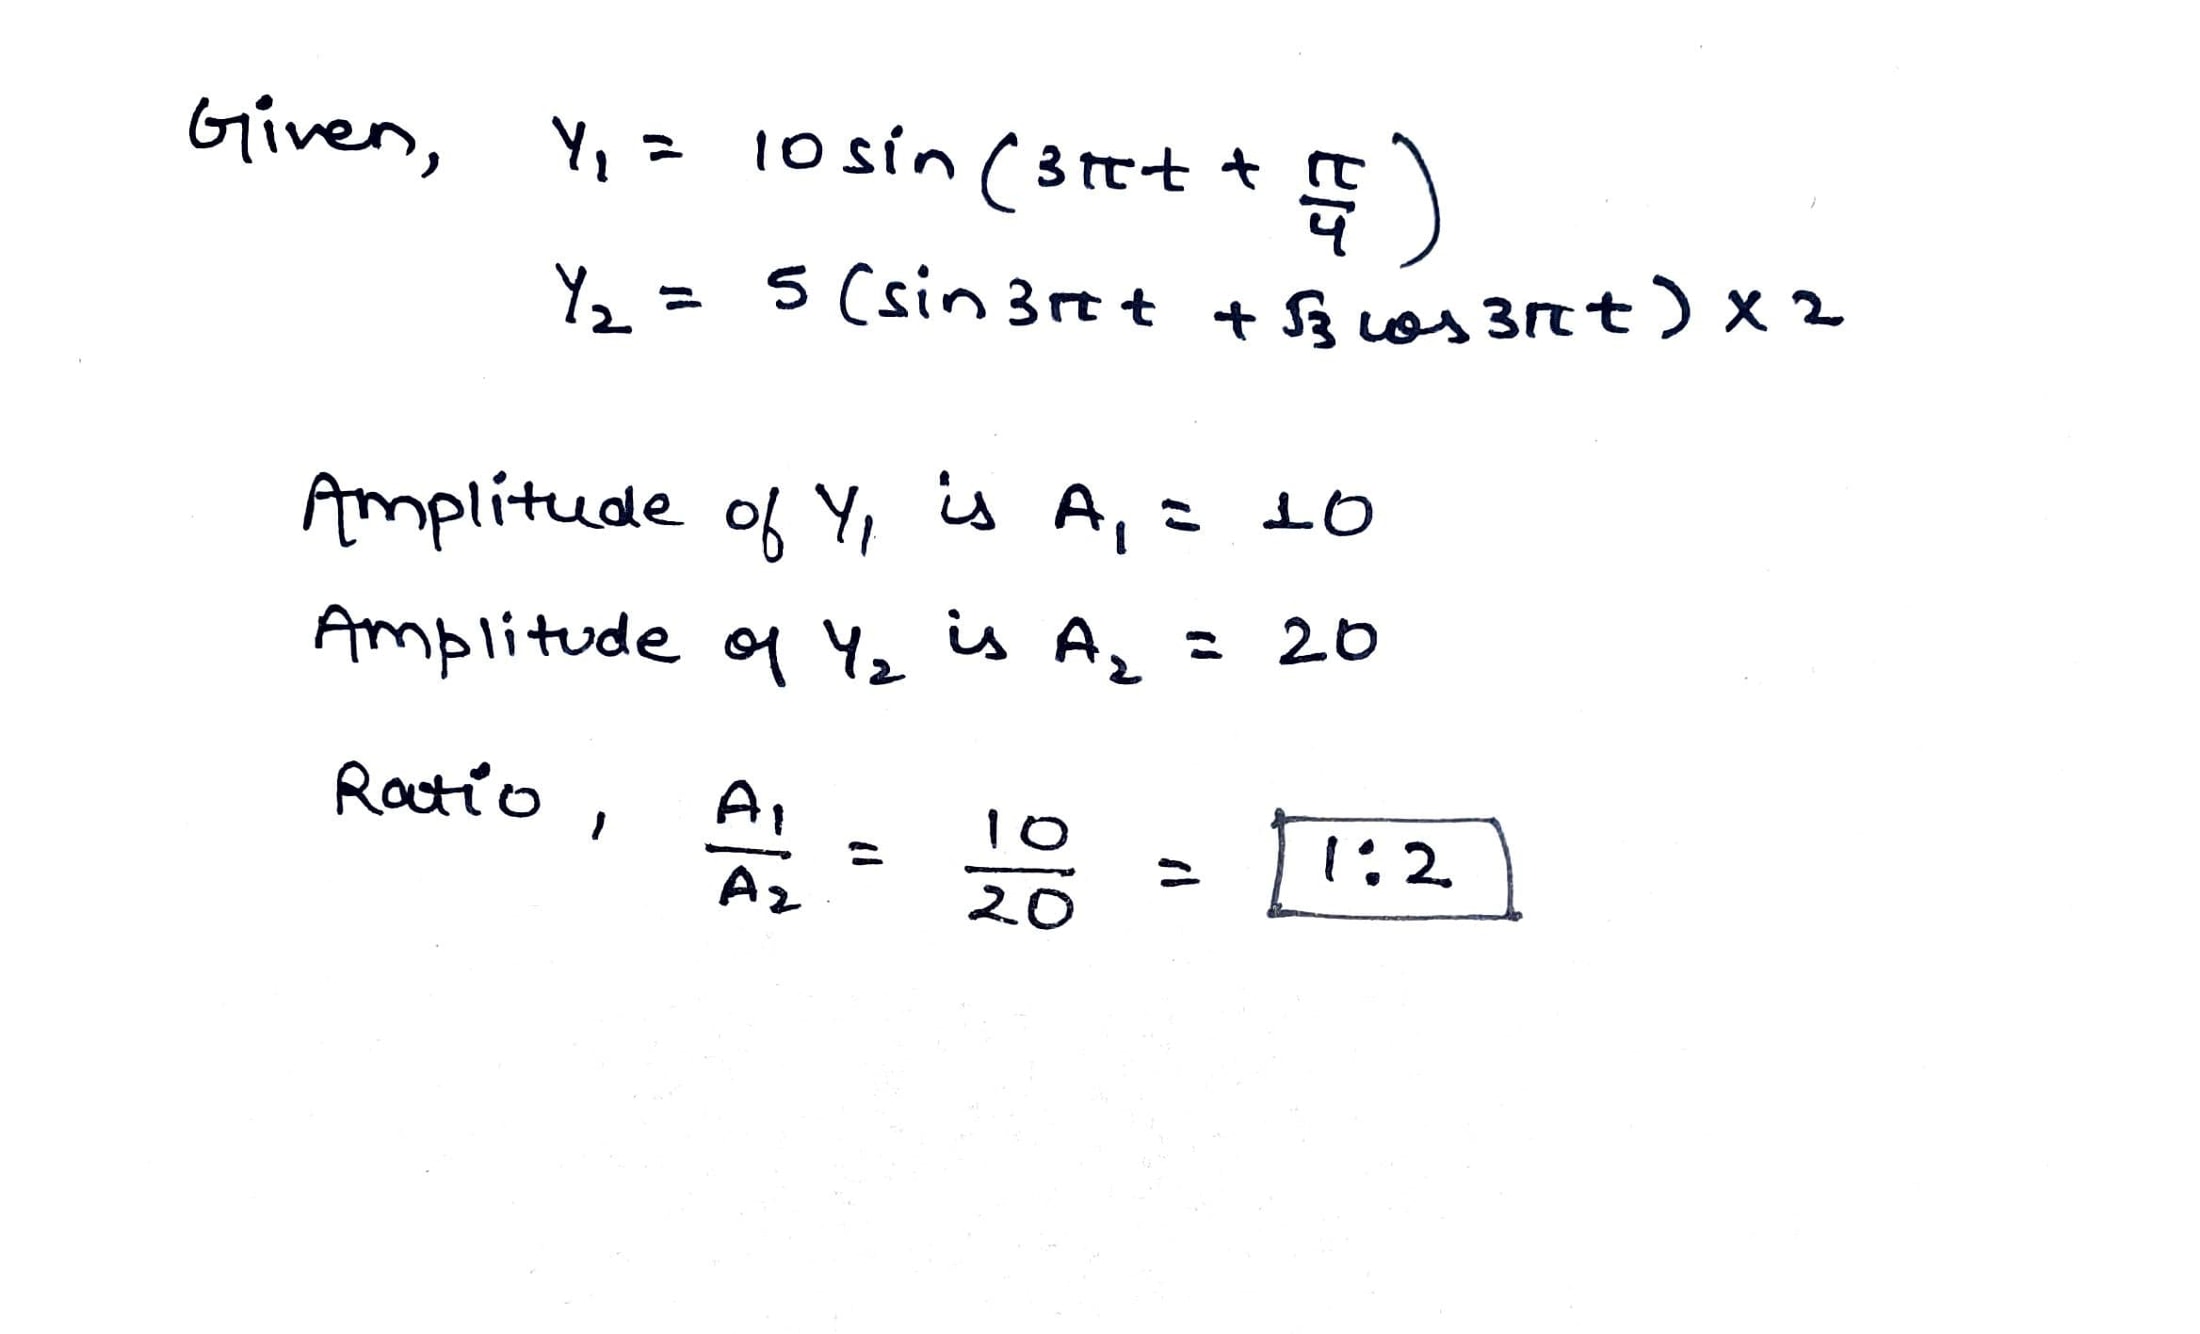 Given, Y₁ = 10 sin (3πt + π/4)
Y₂ = 5 (sin 3πt + √3 cos 3πt) × 2
Amplitude of Y₁ is A₁ = 10
Amplitude of Y₂ is A₂ = 20
Ratio, A₁/A₂ = 10/20 = 1:2